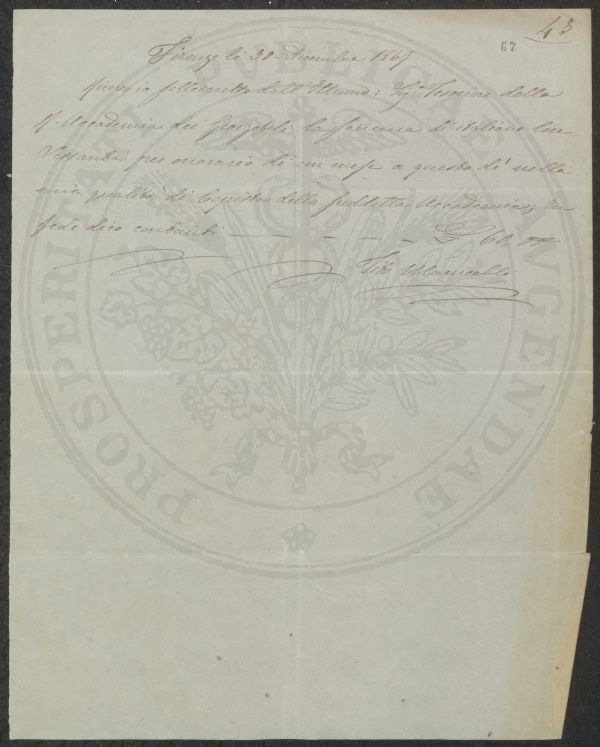 43
67
Firenze li 30 Dicembre 186
sottoscritto dall' Illmo: Sigr Tesoriere della
R. Accademia dei Georgofili la somma di italiane Lire
Sessanta per onorario di un mese a questo dì nella
mia qualità di Copista della suddetta Accademia, in
fede dico contanti — — — — — L 60
PROSPERITATI PUBLICAE AUGENDAE